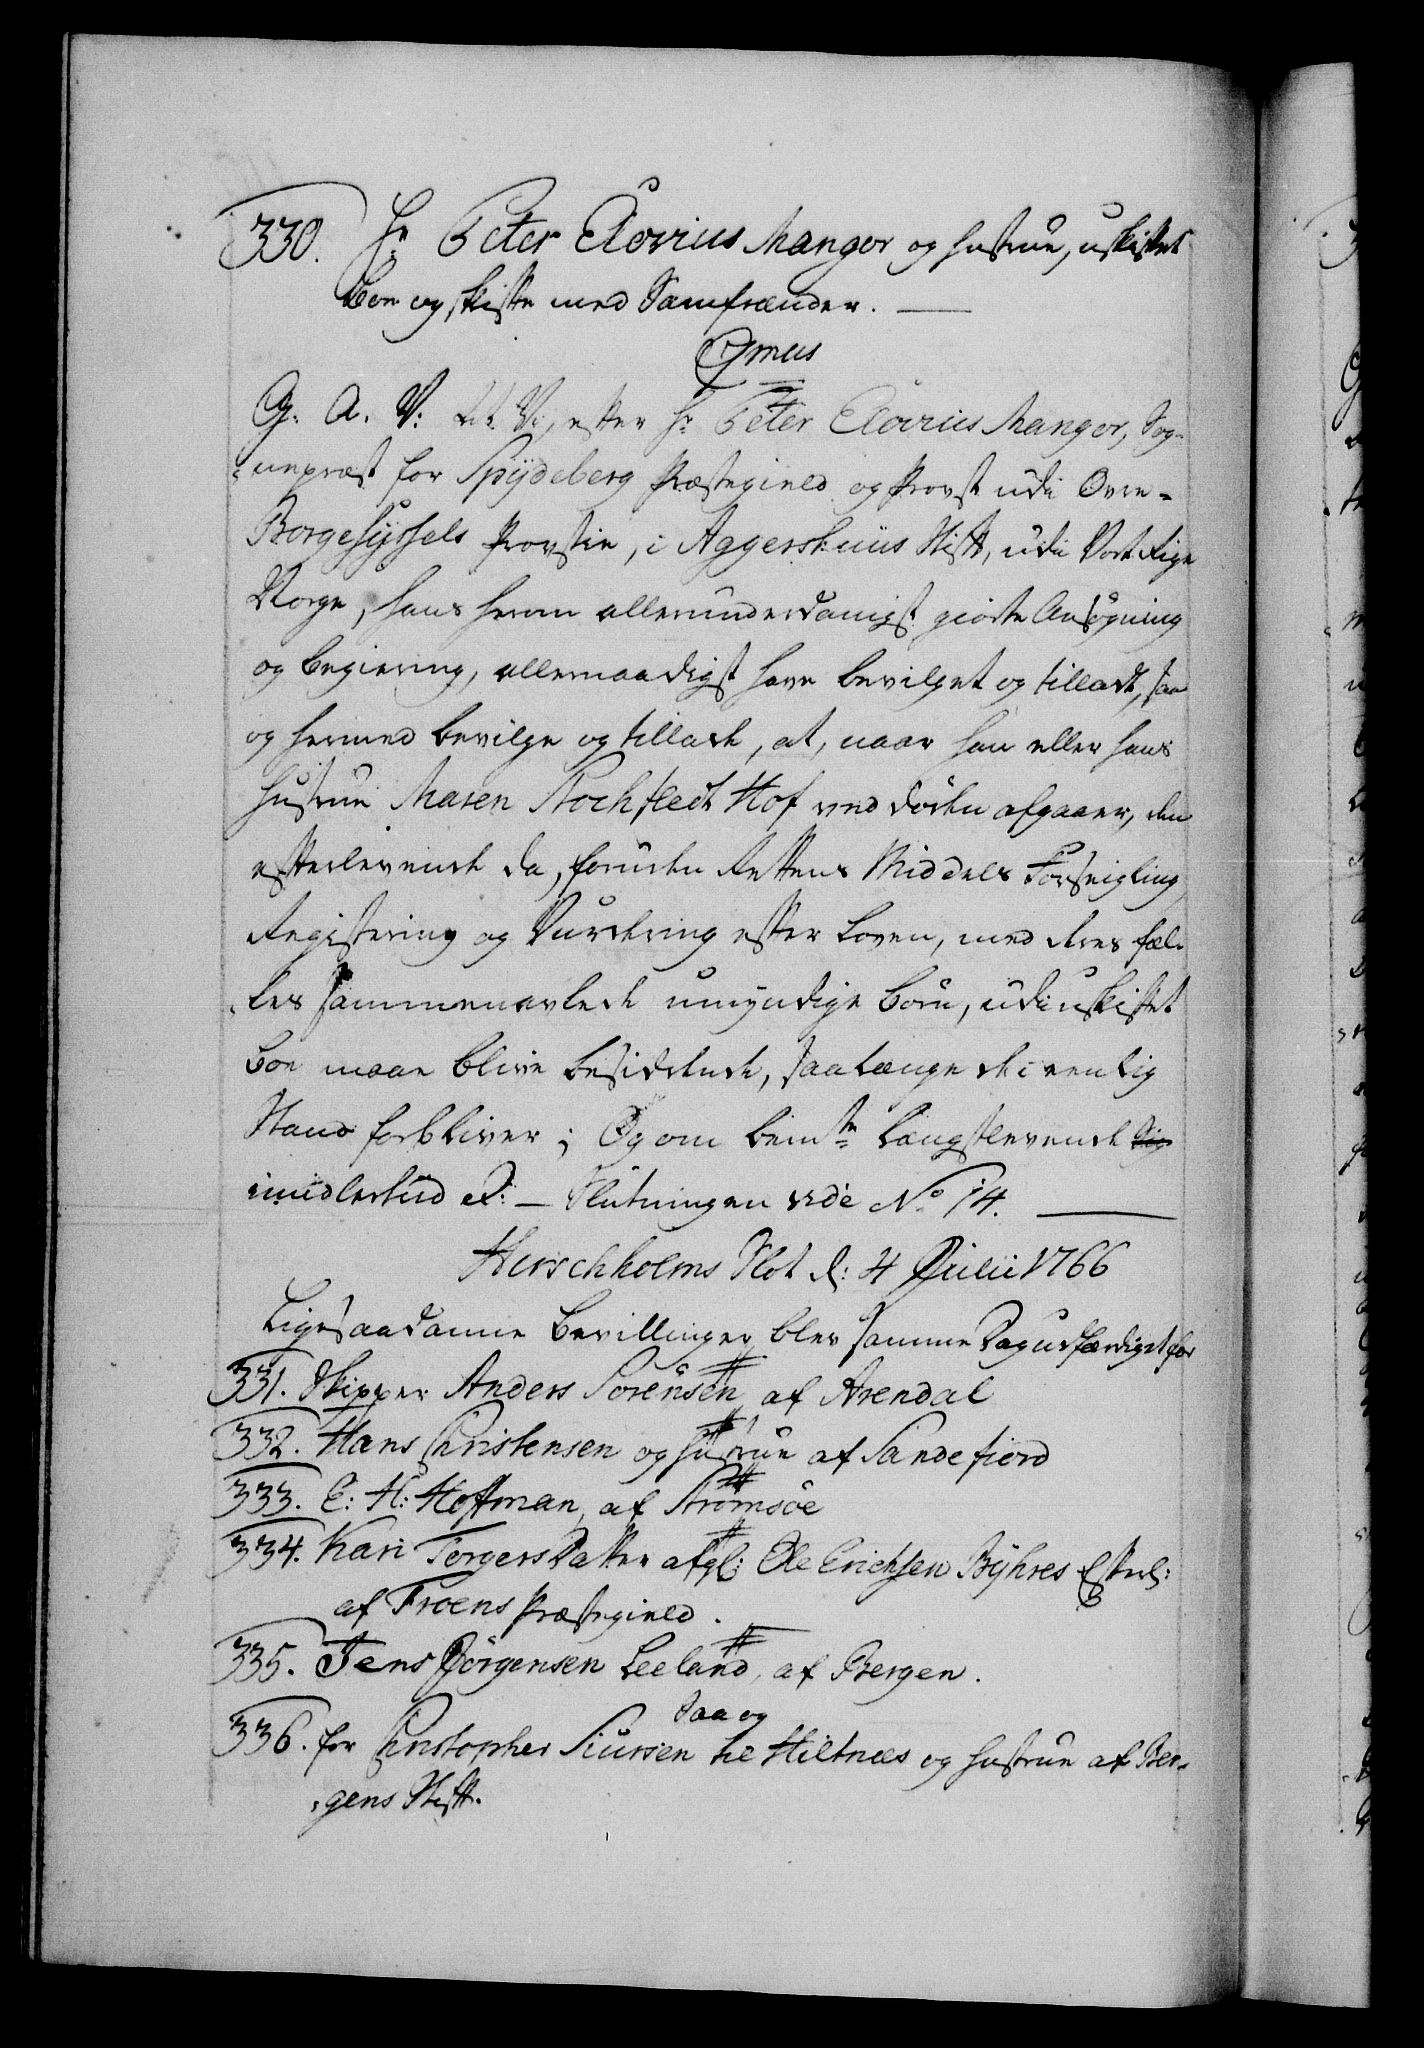 330. Hr Peter Elovius Mangor og hustrue, uskiftet
boe og skifte med Samfrænder.
C7mus
G. A. V: at Vi, efter Hr Peter Elovius Mangor, Sog-
nepræst for Spydeberg Præstegield og Provst udi Ovre-
Borgesyssels Provstie, i Aggershuus Stift, udi Vort Rige
Norge, hans herom allerunderdanigst giorte Ansøgning
og begiering, allernaadigst have bevilget og tilladt, saa
og hermed bevilge og tillade, at, naar han eller hans
hustrue Maren Stochfledt Hof ved døden afgaaer, den
efterlevende da, foruden Rettens Middels Forseigling,
Registering og Vurdering efter Loven, med deres fæl-
les sammenavlede umyndige børn, udi uskiftet
boe maae blive besiddende, saalænge de i eenlig
Stand forbliver; Og om bemte Længstlevende sig
imidlertiid &: — Slutningen vide No 14.
Hirschholms Slot d: 4 Julii 1766
Ligesaadanne bevillinger blev samme Dag udfærdiget for
331. Skipper Anders Sørensen af Arendal
332. Hans Christensen og hustrue af Sandefiord
333. C: H: Hoffman, af Strømsøe
334. Kari Torgersdatter afgl: Ole Erichsen Byhres Efterl:
af Froens Præstegield.
335. Jens Jørgensen Leeland, af Bergen.
Saa og
336. for Christopher Siursen til Hiltnæs og hustrue af Ber-
gens Stift.